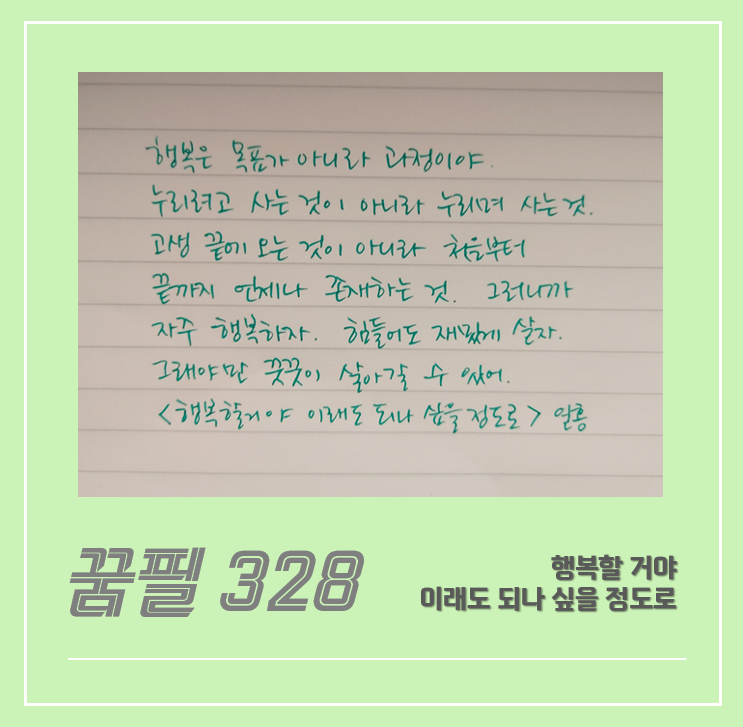 행복은 목표가 아니라 과정이야.
누리려고 사는 것이 아니라 누리며 사는 것.
고생 끝에 오는 것이 아니라 처음부터
끝까지 언제나 존재하는 것. 그러니까
자주 행복하자. 힘들어도 재밌게 살자.
그래야만 꿋꿋이 살아갈 수 있어.
<행복할거야 이래도 되나 싶을 정도로> 일홍
꿈필 328
행복할 거야
이래도 되나 싶을 정도로